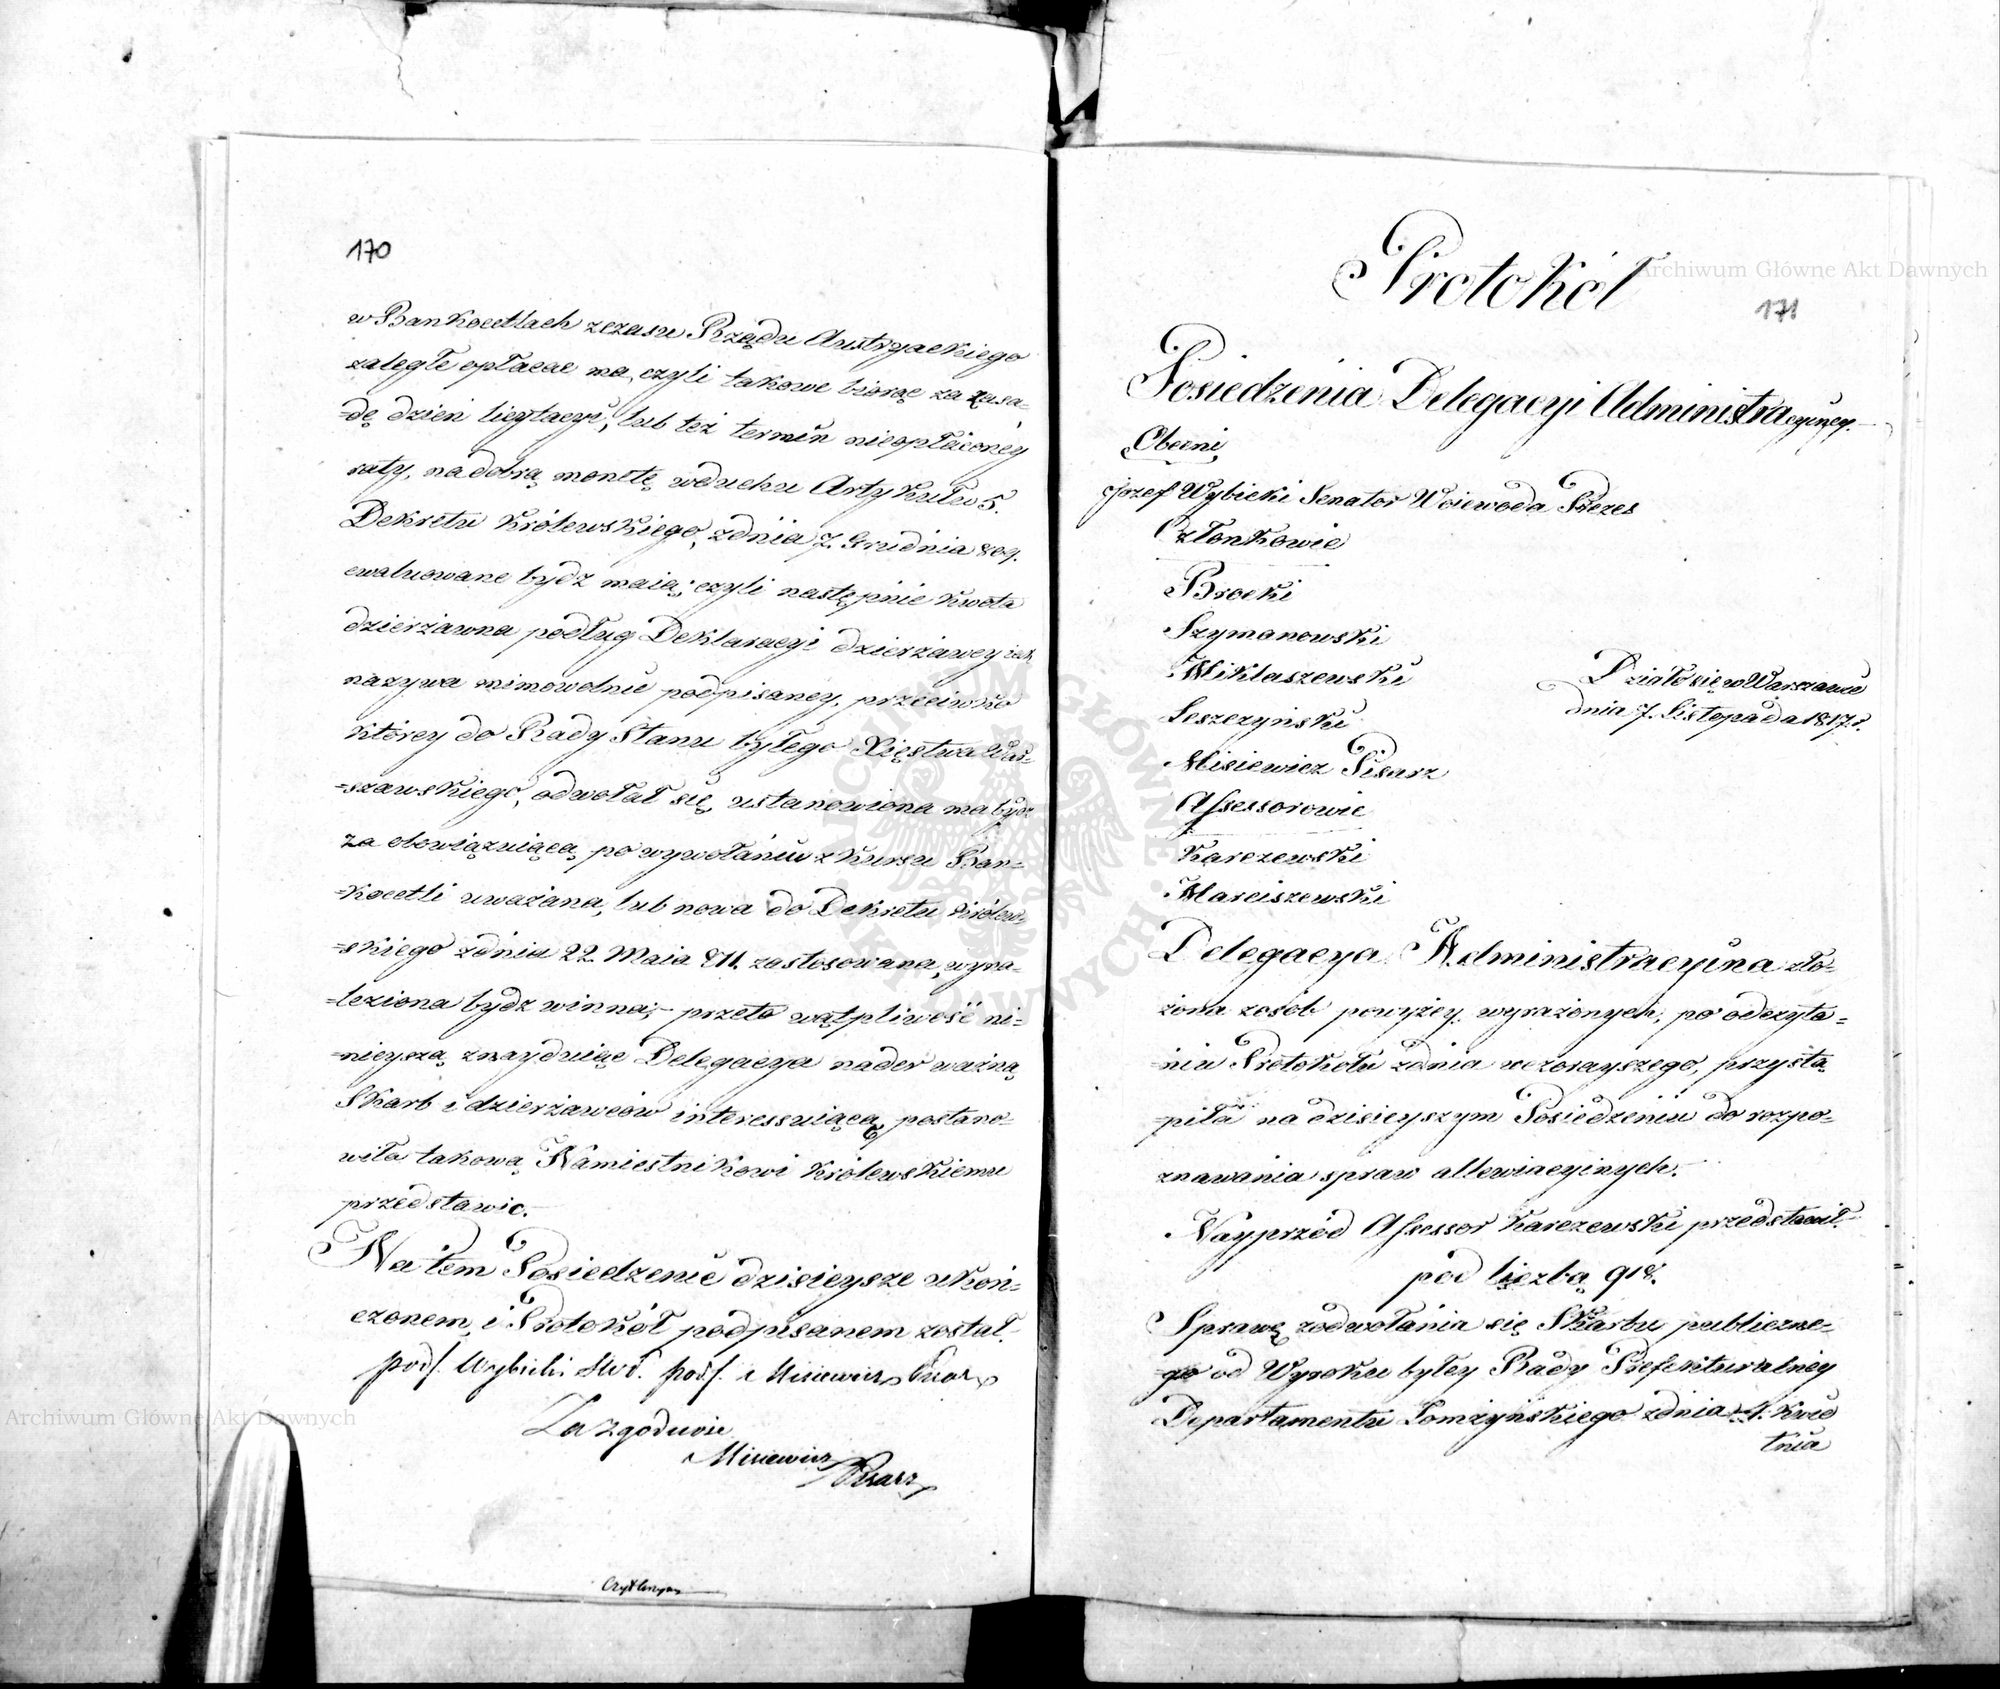 170
w Bankocetlach z czasu Rządu Austryackiego
zaległe opłacać ma, czyli takowe biorąc za zasa=
=dę dzień licytacyi, lub też termin nieopłaconéy
raty, na dobrą monetę w duchu Artykułu 5.
Dekretu Królewskiego z dnia 7. Grudnia 809.
ewaluowane bydź maią; czyli następnie kwota
dzierzawna podług Deklaracyi dzierżawcy iak
nazywa mimowolnie podpisaney, przeciwko
którey do Rady Stanu byłego Xięstwa War=
=szawskiego, odwołał się, ustanowiona ma bydź
za obowiązuiącą, po wywołaniu z kursu Ban=
=kocetli uważana, lub nowa do Dekretu Królew=
=skiego z dnia 22. Maia 811. zastosowana, wyna=
=leziona bydź winna; przeto wątpliwość ni=
=nieyszą znayduiąc Delegacya nader ważną
Skarb i dzierżawców interessuiącą, postano=
wiła takową Namiestnikowi Królewskiemu
przedstawić.
Na tem Posiedzenie dzisieysze ukoń=
czonem, i Protokół podpisanem został.
podp. Wybicki SWd. podp. Misiewicz Pisarz
Za zgodność
Misiewicz Pisarz
Archiwum Główne Akt Dawnych
Protokół
Archiwum Główne Akt Dawnych
171
Posiedzenia Delegacyi Administracyiney.
Obecni
Jozef Wybicki Senator Woiewoda Prezes
Członkowie
Brocki
Szymanowski
Miklaszewski
Leszczyński
Działo się w Warszawie
dnia 7. Listopada 1817. r.
Misiewicz Pisarz
Assessorowie
Karczewski
Marciszewski
Delegacya Administracyina zło=
żona z osób powyżey wyrażonych, po odczyta=
=niu Protokołu z dnia wczorayszego, przystą=
=piła na dzisieyszym Posiedzeniu do rozpo=
znawania spraw allewiacyinych.
Nayprzód Assessor Karczewski przedstawił
pod liczbą 918.
Sprawę z odwołania się Skarbu publiczne=
=go od Wyroku byłey Rady Prefekturalnéy
Departamentu Łomżyńskiego z dnia 4. Kwie
tnia
ARCHIWUM GŁÓWNE AKT DAWNYCH